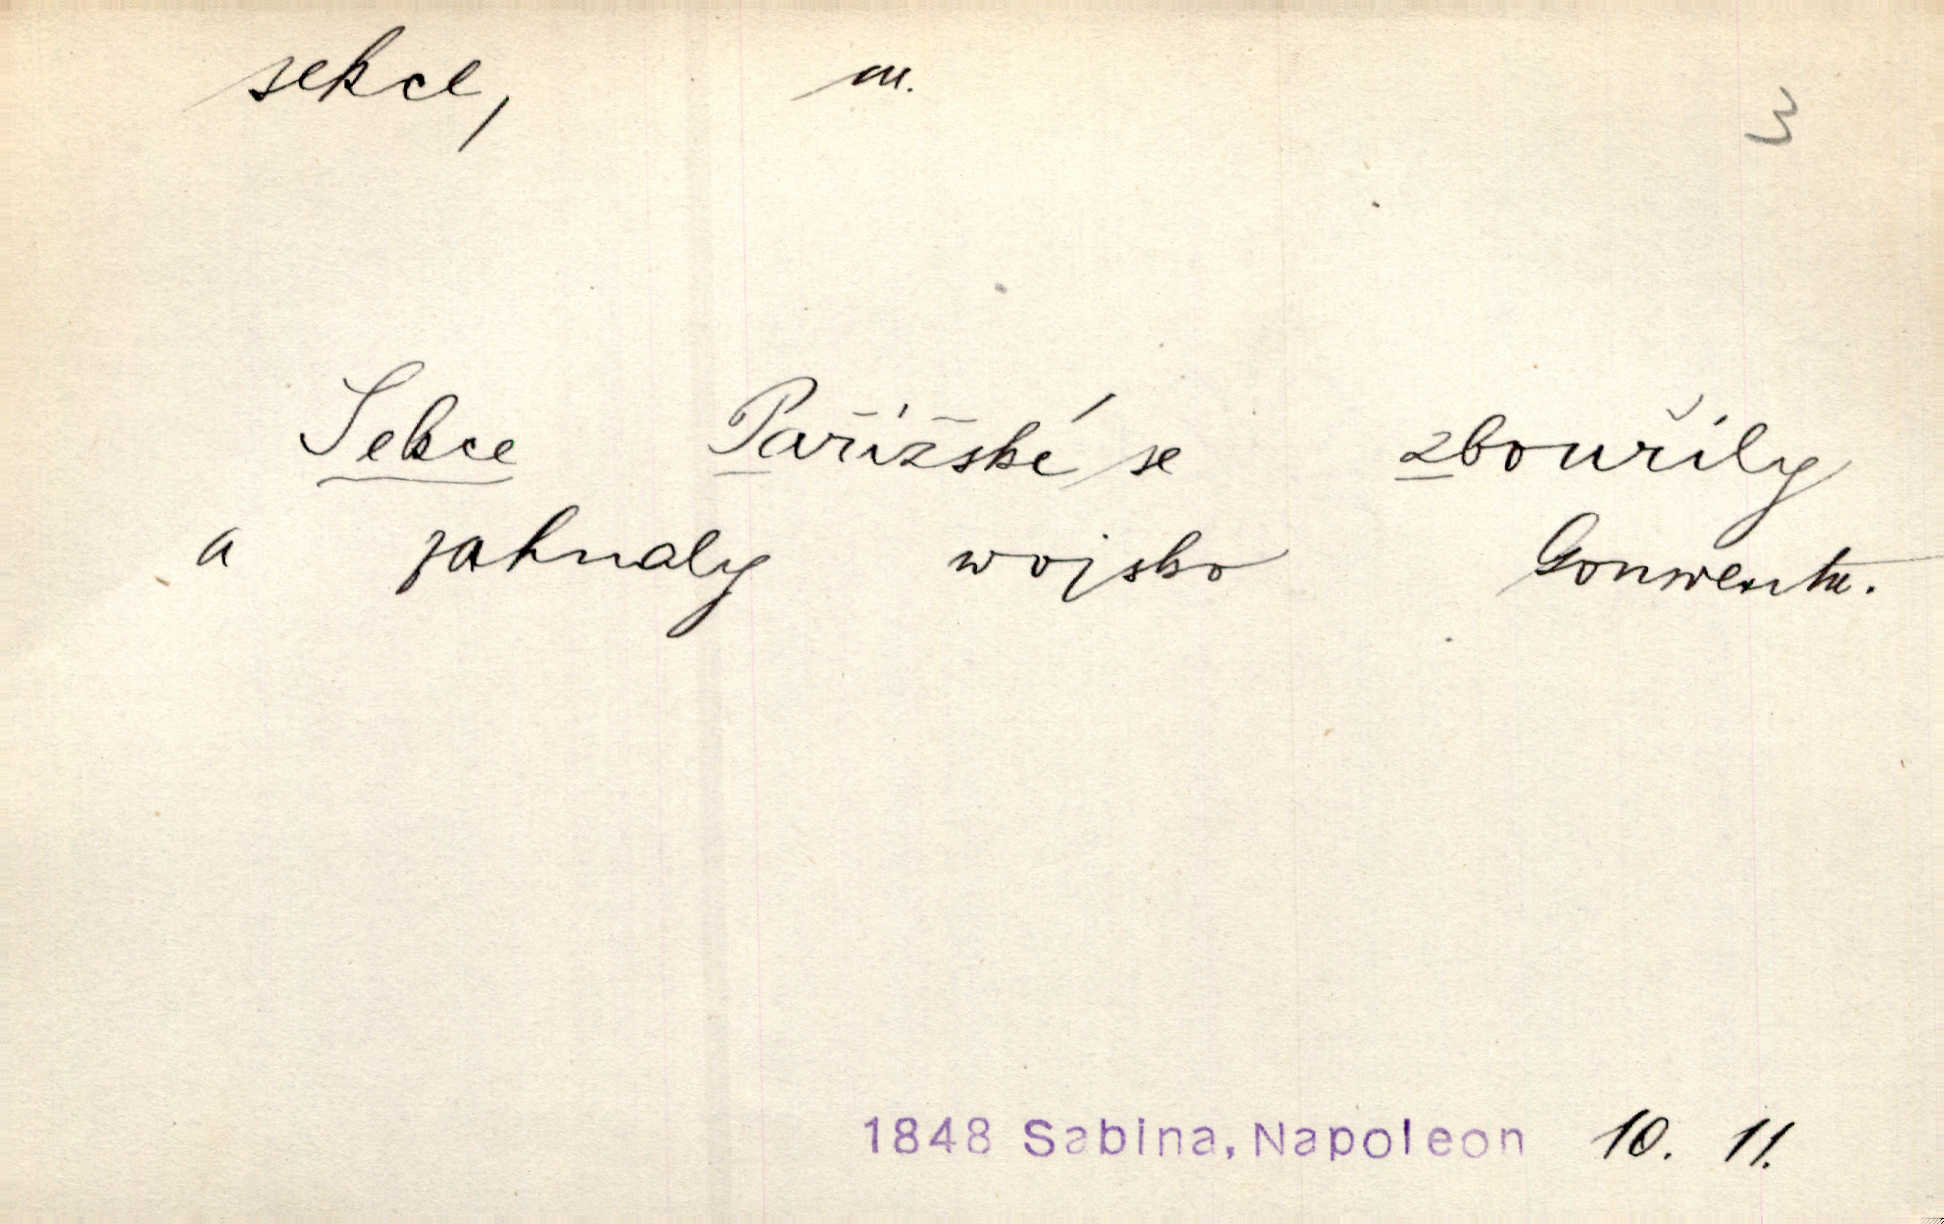 sekce, m.
3
Sekce Pařížské se zbouřily
a zahnaly wojsko Gonwentu.
1848 Sabina, Napoleon 10. 11.